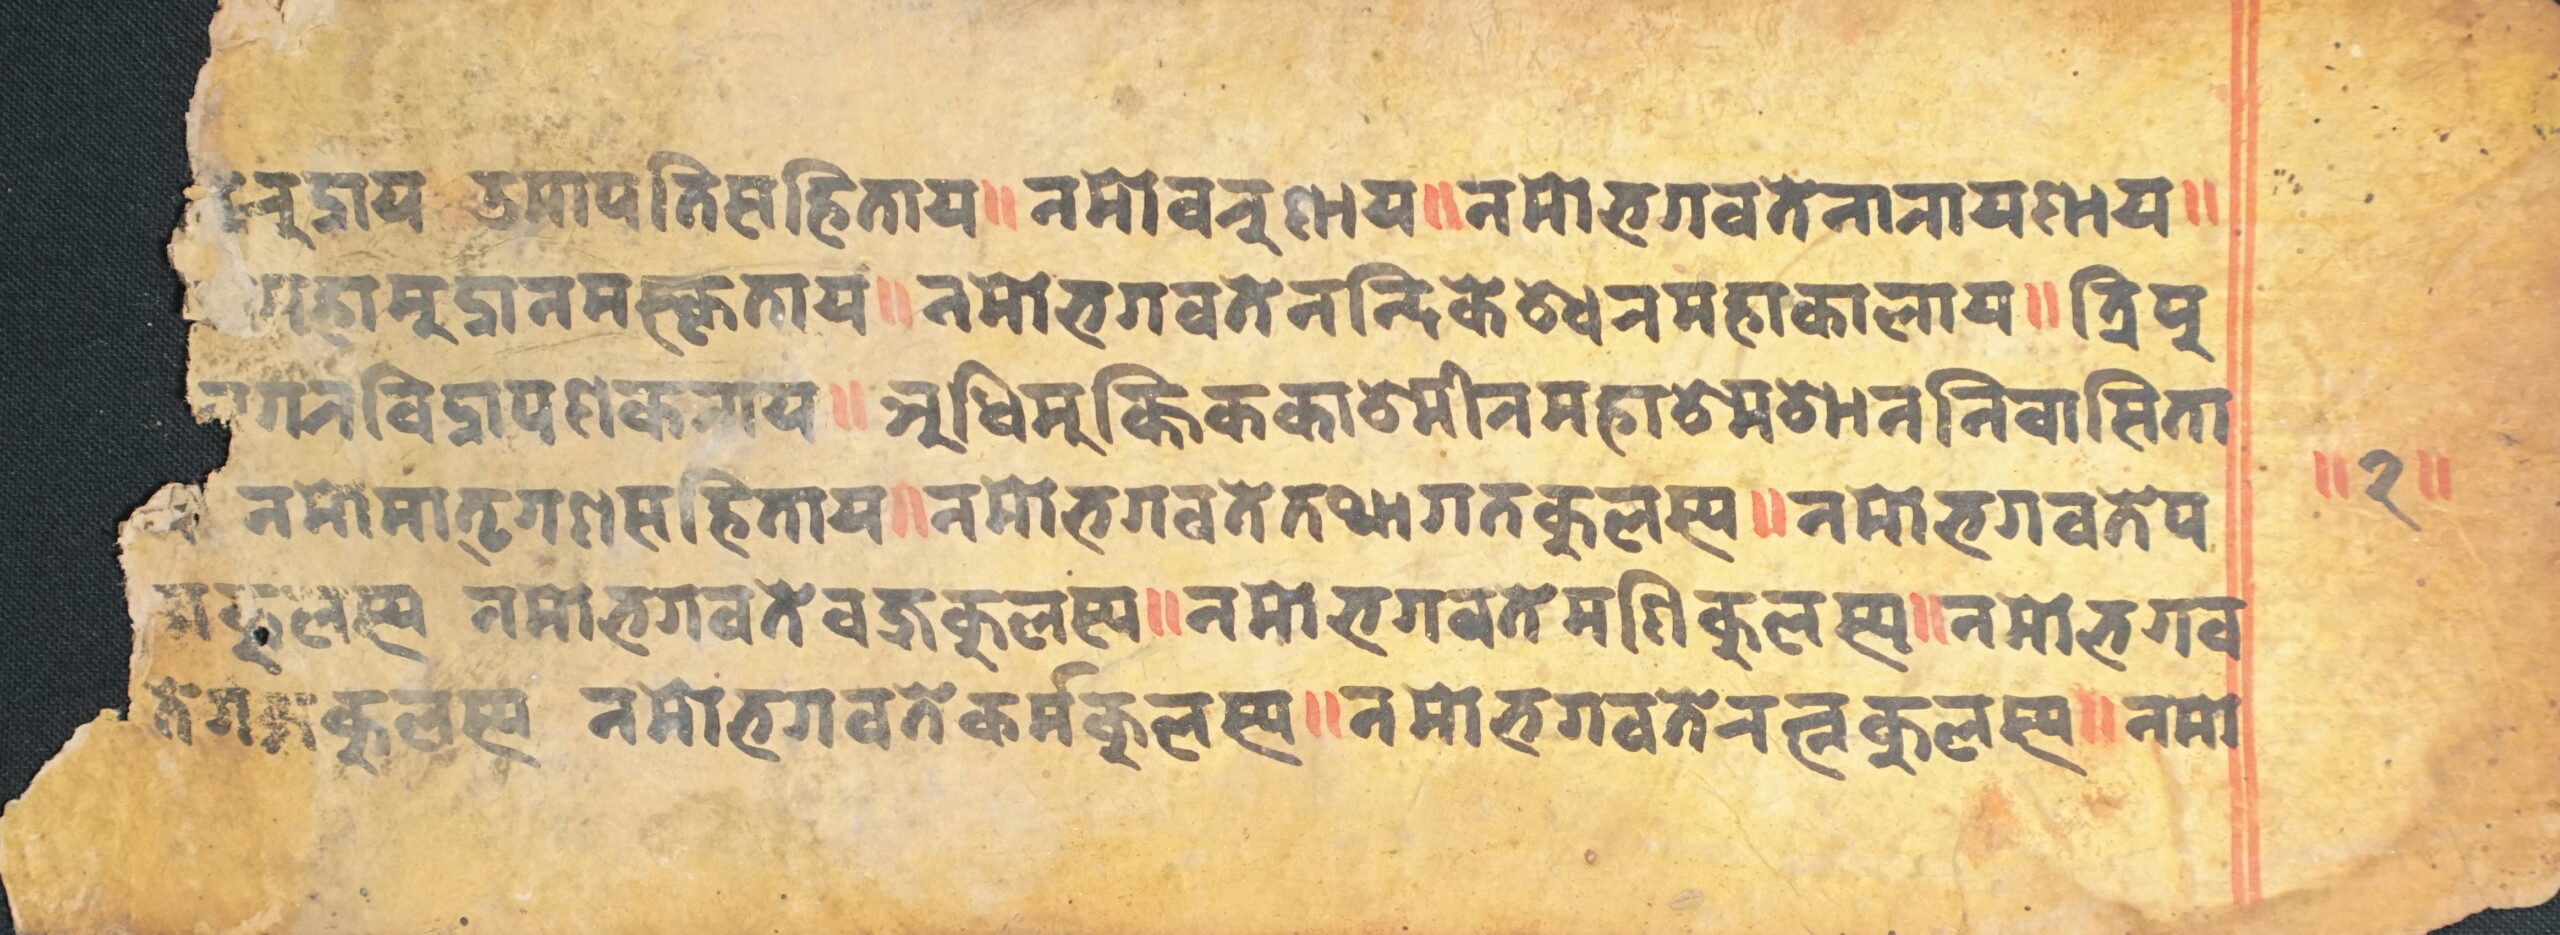 रुद्राय उमापतिसहिताय॥ नमोवरुणाय॥नमोभगवतेनारायणाय॥
महामुद्रानमस्कृताय॥नमोभगवतेनन्दिकेश्वरमहाकालाय॥त्रिपु
गरविद्रापणकराय॥ अधिमुक्तिककाश्मीरमहाश्मशाननिवासिता
नमोमातृगणसहिताय॥नमोभगवतेतथागतकुलस्य॥नमोभगवतेप
कुलस्य नमोभगवतेवज्रकुलस्य॥नमोभगवतेमणिकुलस्य॥नमोभगव
तेगजकुलस्य नमोभगवतेकर्मकुलस्य॥नमोभगवतेरत्नकुलस्य॥नमो
॥२॥